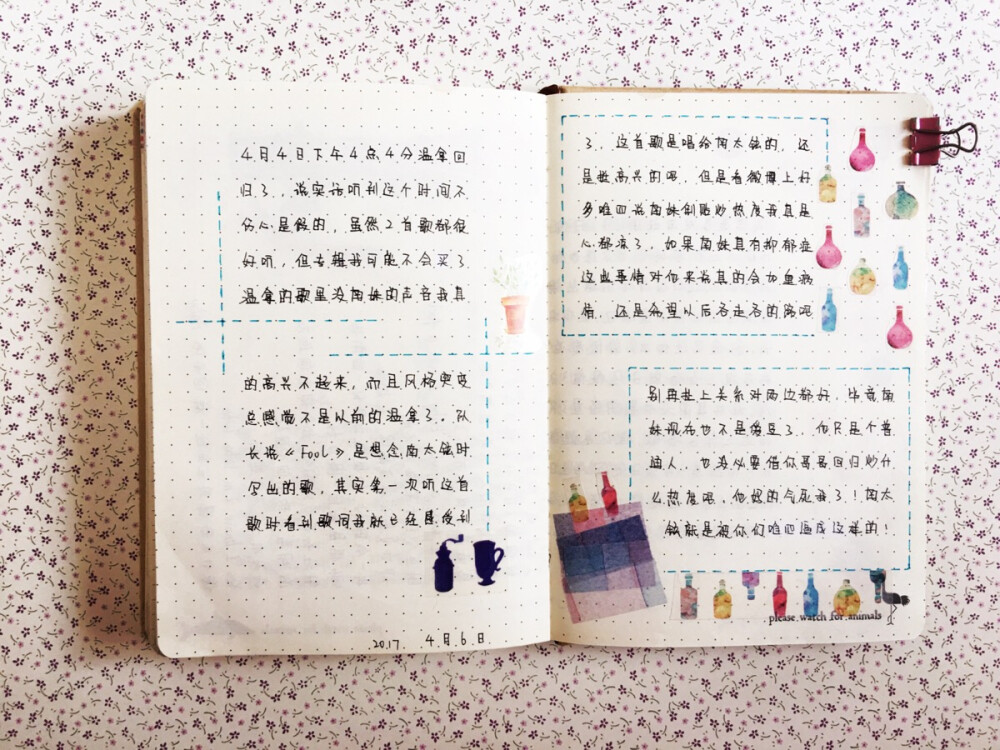 4月4日下午4点4分温拿回
归了，说实话听到这个时间不
伤心是假的，虽然2首歌都很
好听，但专辑我可能不会买了
温拿的歌里没南妹的声音我真
的高兴不起来，而且风格突变
总感觉不是以前的温拿了。队
长说《Fool》是想念南太铉时
写出的歌，其实第一次听这首
歌时看到歌词我就已经感受到
了，这首歌是唱给南太铉的，还
是挺高兴的吧，但是看微博上好
多唯四说南妹倒贴炒热度我真是
心都凉了，如果南妹真有抑郁症
这些事情对他来说真的会加重病
情，还是希望以后各走各的路吧
别再扯上关系对两边都好，毕竟南
妹现在也不是爱豆了，他只是个普
通人，也没必要借你哥哥回归炒什
么热度吧，他妈的气死我了！南太
铉就是被你们唯四逼成这样的！
2017. 4月6日.
please watch for animals